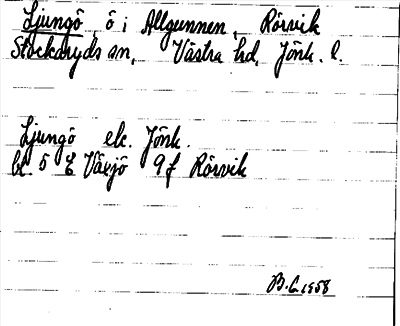 Ljungö, ö i Allgunnen, Rörvik
Stockaryds sn, Västra hd, Jönk. l.
Ljungö ek. Jönk.
bl. 5 E Växjö 9 f Rörvik
B.L. 1958